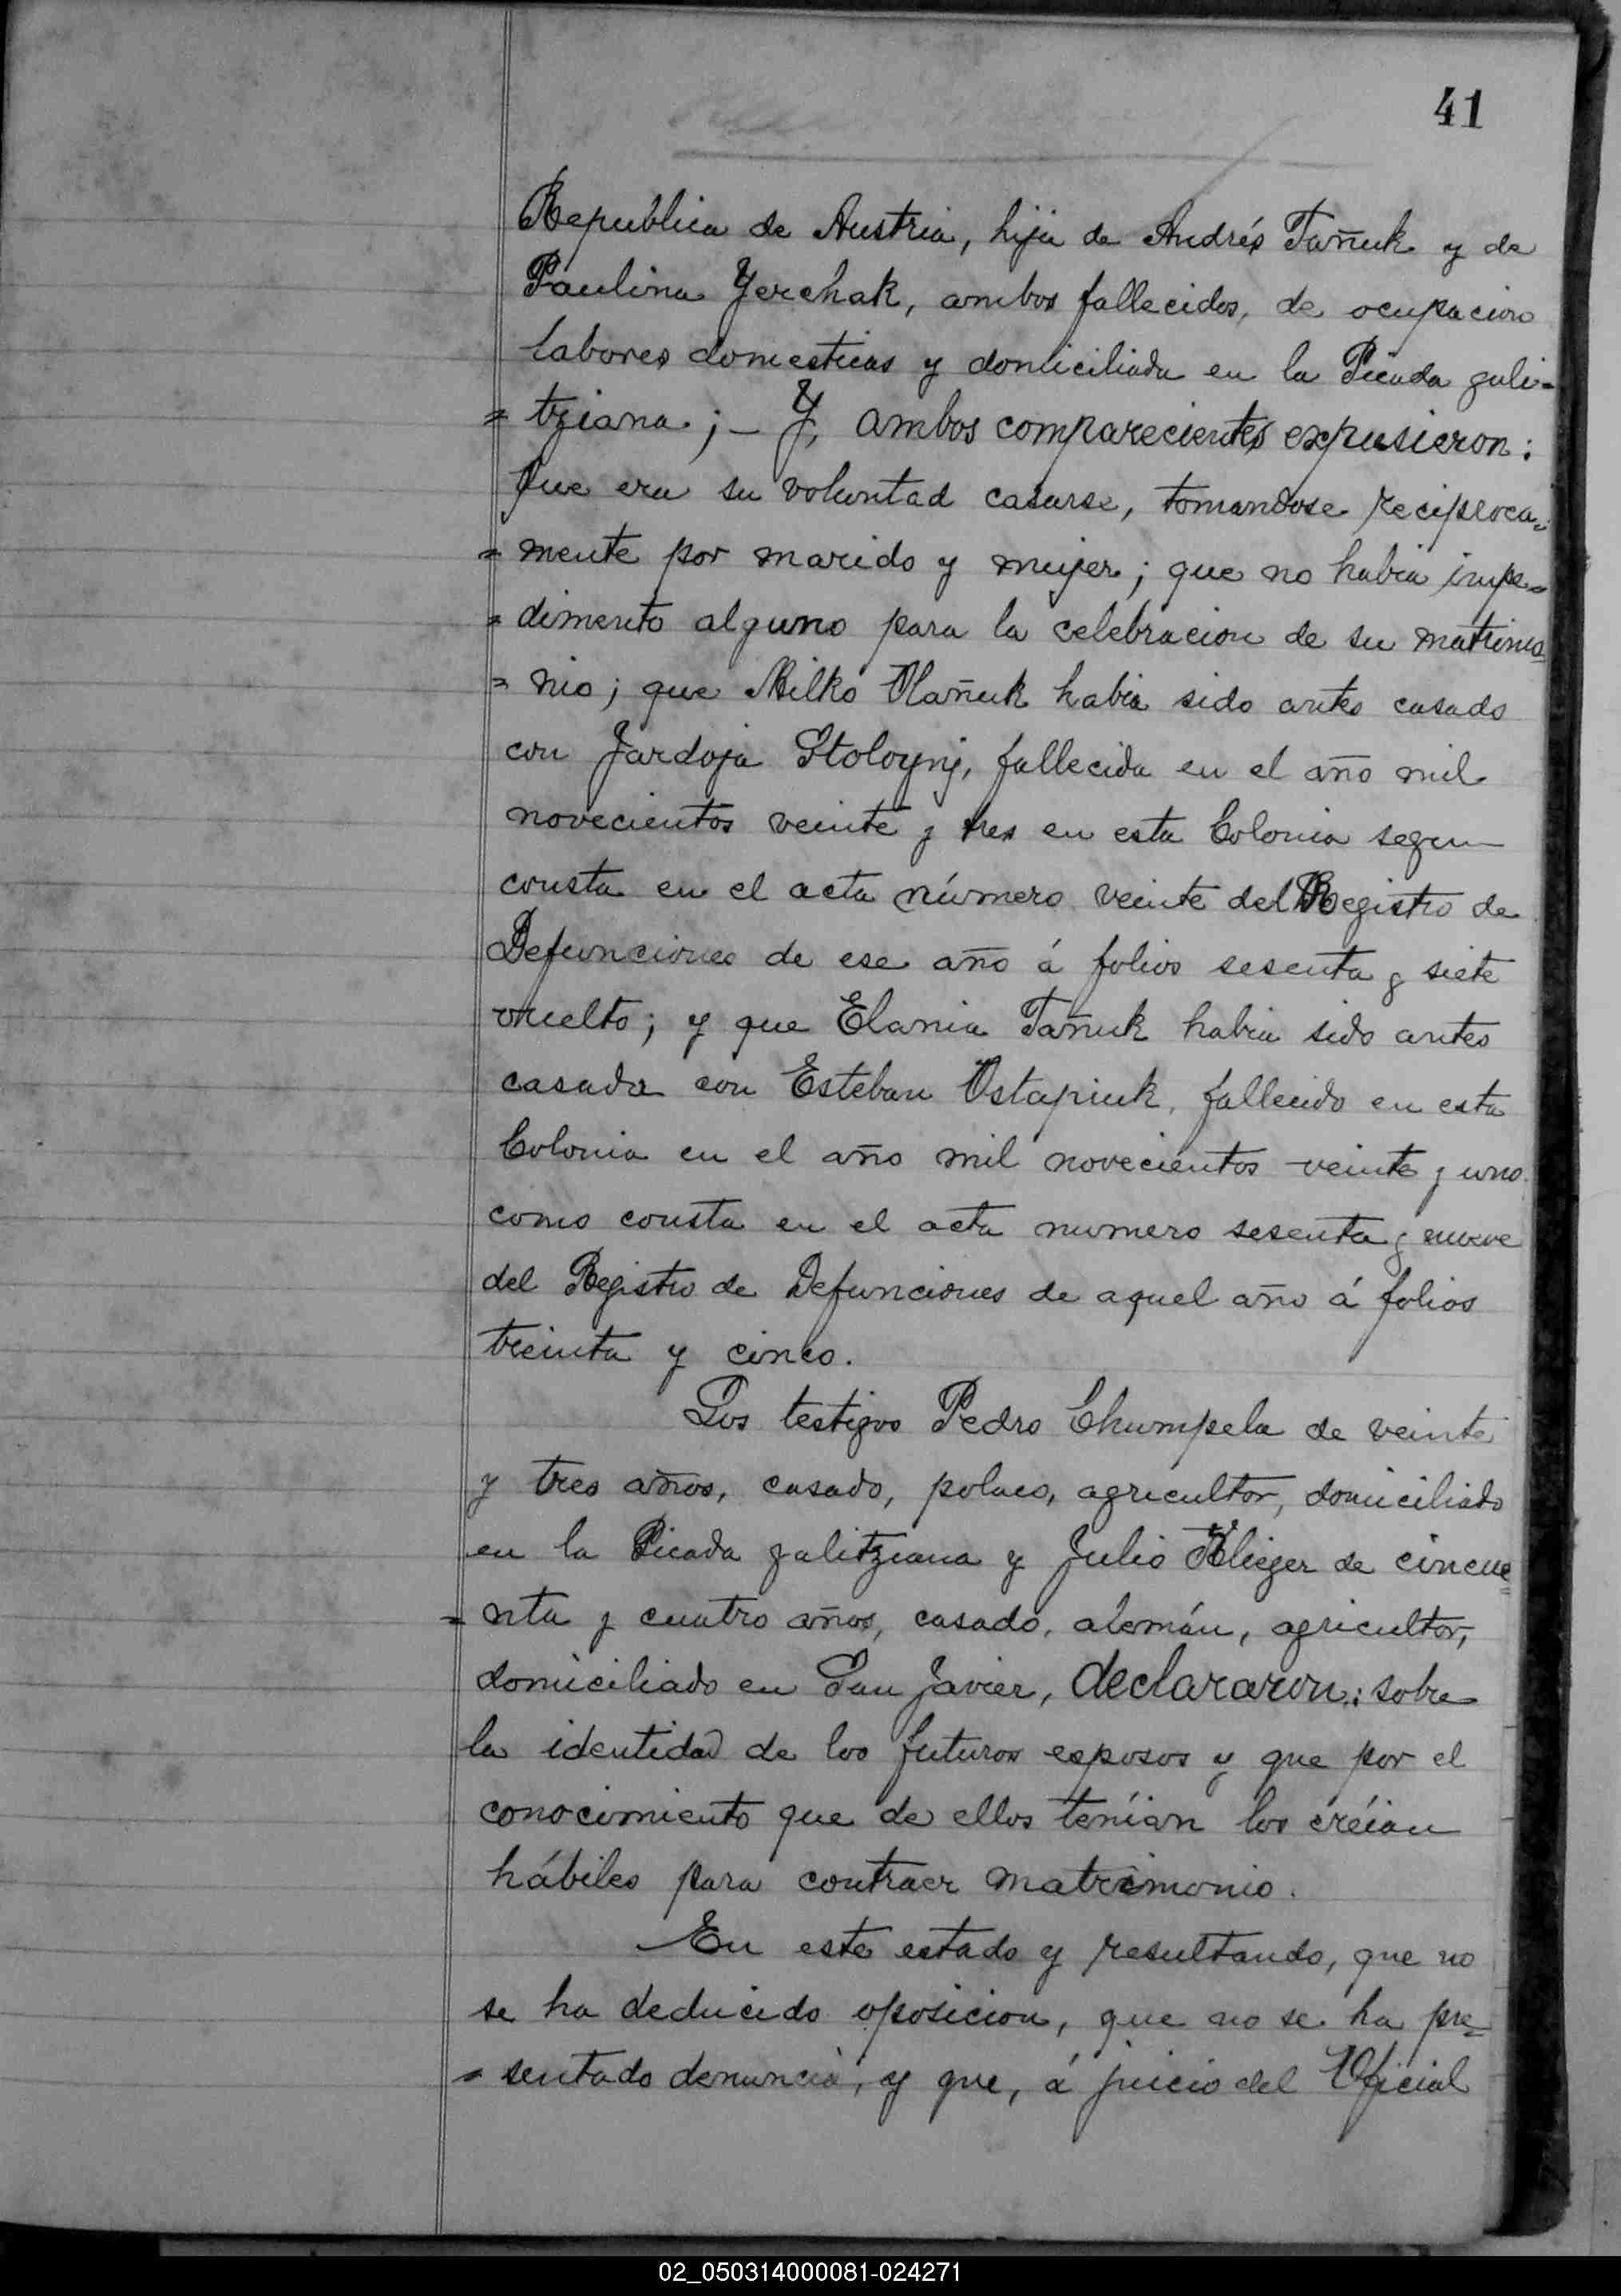 41
Republica de Austria, hija de Andrés Tañuk y de
Paulina Yerchak, ambos fallecidos, de ocupacion
labores domesticas y domiciliada en la Picada gali-
= tziana; - Y, ambos comparecientes expusieron:
Que era su voluntad casarse, tomandose reciproca=
= mente por marido y mujer; que no habia impe=
= dimento alguno para la celebracion de su matrimo
= nio; que Milko Olañuk habia sido antes casado
con Jardoja Stoloynj, fallecida en el año mil
novecientos veinte y tres en esta Colonia segun
consta en el acta número veinte del Registro de
Defunciones de ese año á folios sesenta y siete
vuelto; y que Elania Tañuk habia sido antes
casada con Esteban Ostapiuk, fallecido en esta
Colonia en el año mil novecientos veinte y uno
como consta en el acta numero sesenta y nueve
del Registro de Defunciones de aquel año á folios
treinta y cinco.
Los testigos Pedro Chumpela de veinte
y tres años, casado, polaco, agricultor, domiciliado
en la Picada galitziana y Julio Klieger de cincue
= nta y cuatro años, casado, alemán, agricultor,
domiciliado en San Javier, declararon: sobre
la identidad de los futuros esposos y que por el
conocimiento que de ellos tenían los créian
hábiles para contraer matrimonio.
En este estado y resultando, que no
se ha deducido oposicion, que no se ha pre=
= sentado denuncia, y que, á juicio del Oficial
02_050314000081-024271